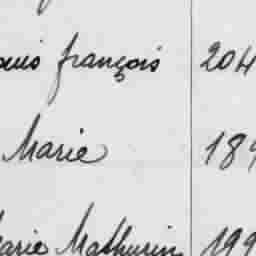 ouis françois 204
Marie 189
arie Mathurin 199